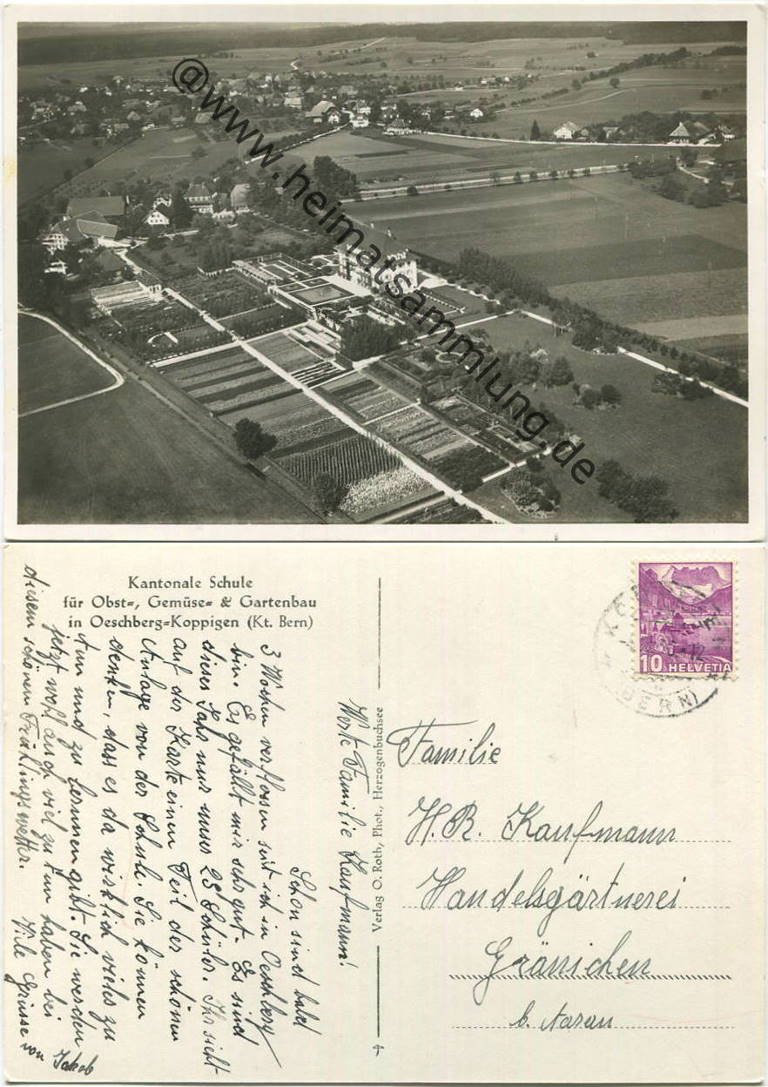 @www.heimatsammlung.de
Kantonale Schule
für Obst-, Gemüse- & Gartenbau
in Oeschberg-Koppigen (Kt. Bern)
Werte Familie Kaufmann!
Schon sind bald
3 Wochen verflossen seit ich in Oeschberg
bin. Es gefällt mir sehr gut. Es sind
dieses Jahr nur neue 25 Schüler. Ihr sieht
auf der Karte einen Teil der schönen
Anlage von der Schule. Sie können
denken, dass es da wirklich vieles zu
tun und zu lernen gibt. Sie werden
jetzt wohl auch viel zu tun haben bei
diesem schönen Frühlingswetter. Viele Grüsse
von Jakob
Verlag O. Roth, Phot., Herzogenbuchsee
10 HELVETIA
(BERN)
Familie
H.R. Kaufmann
Handelsgärtnerei
Gränichen
b. Aarau